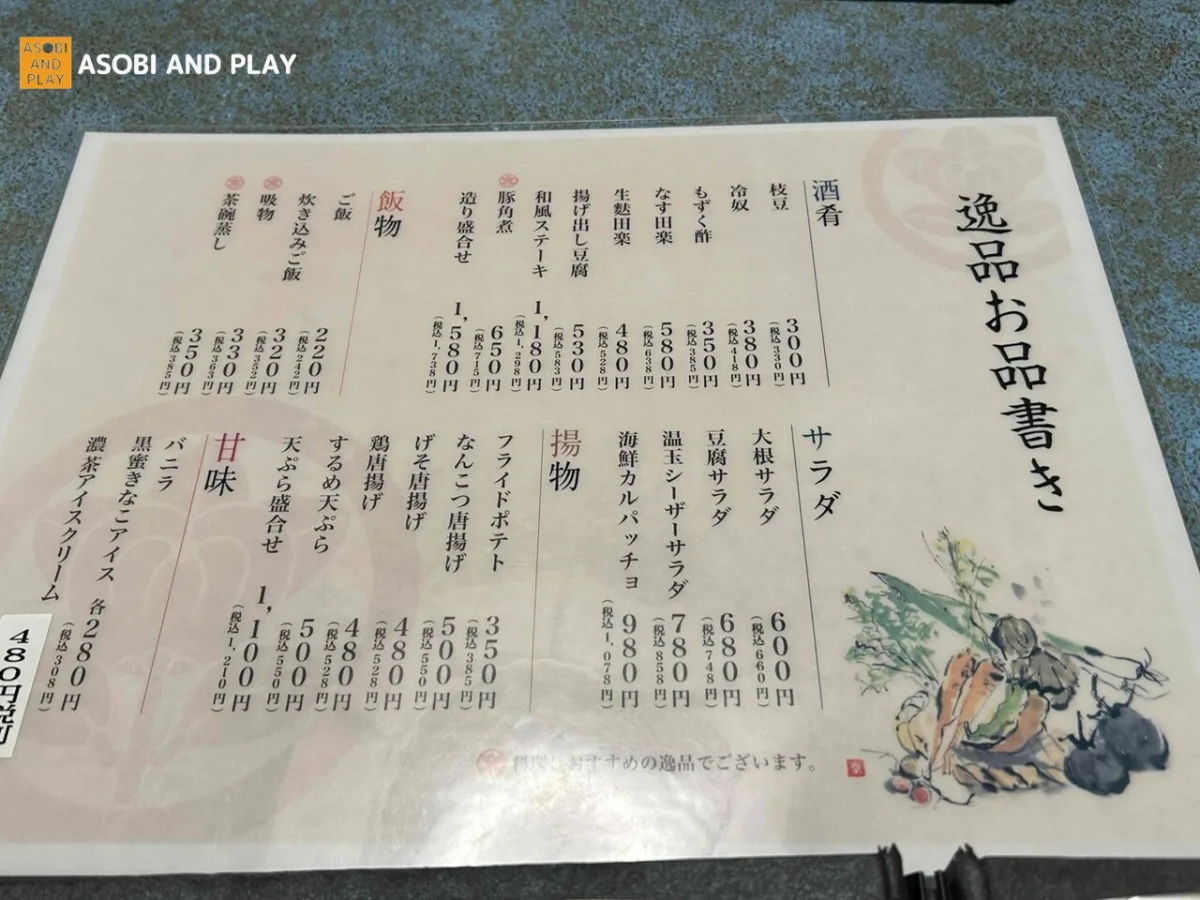 ASOBI
AND
PLAY
ASOBI AND PLAY
逸品お品書き
酒肴
枝豆 300円(税込330円)
冷奴 380円(税込418円)
もずく酢 350円(税込385円)
なす田楽 580円(税込638円)
生麩田楽 480円(税込528円)
揚げ出し豆腐 530円(税込583円)
和風ステーキ 1,180円(税込1,298円)
豚角煮 650円(税込715円)
造り盛合せ 1,580円(税込1,738円)
飯物
ご飯 220円(税込242円)
炊き込みご飯 320円(税込352円)
吸物 330円(税込363円)
茶碗蒸し 350円(税込385円)
サラダ
大根サラダ 600円(税込660円)
豆腐サラダ 680円(税込748円)
温玉シーザーサラダ 780円(税込858円)
海鮮カルパッチョ 980円(税込1,078円)
揚物
フライドポテト 350円(税込385円)
なんこつ唐揚げ 500円(税込550円)
げそ唐揚げ 480円(税込528円)
鶏唐揚げ 480円(税込528円)
するめ天ぷら 500円(税込550円)
天ぷら盛合せ 1,100円(税込1,210円)
甘味
バニラ
黒蜜きなこアイス 各280円(税込308円)
濃茶アイスクリーム
480円税別
おすすめの逸品でございます。